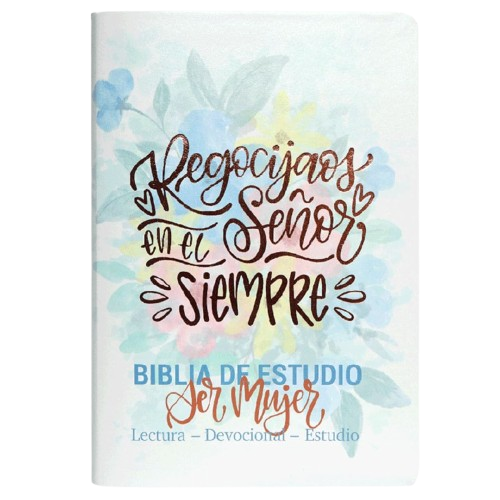 Regocijaos
en el Señor
siempre
BIBLIA DE ESTUDIO
Ser Mujer
Lectura – Devocional – Estudio